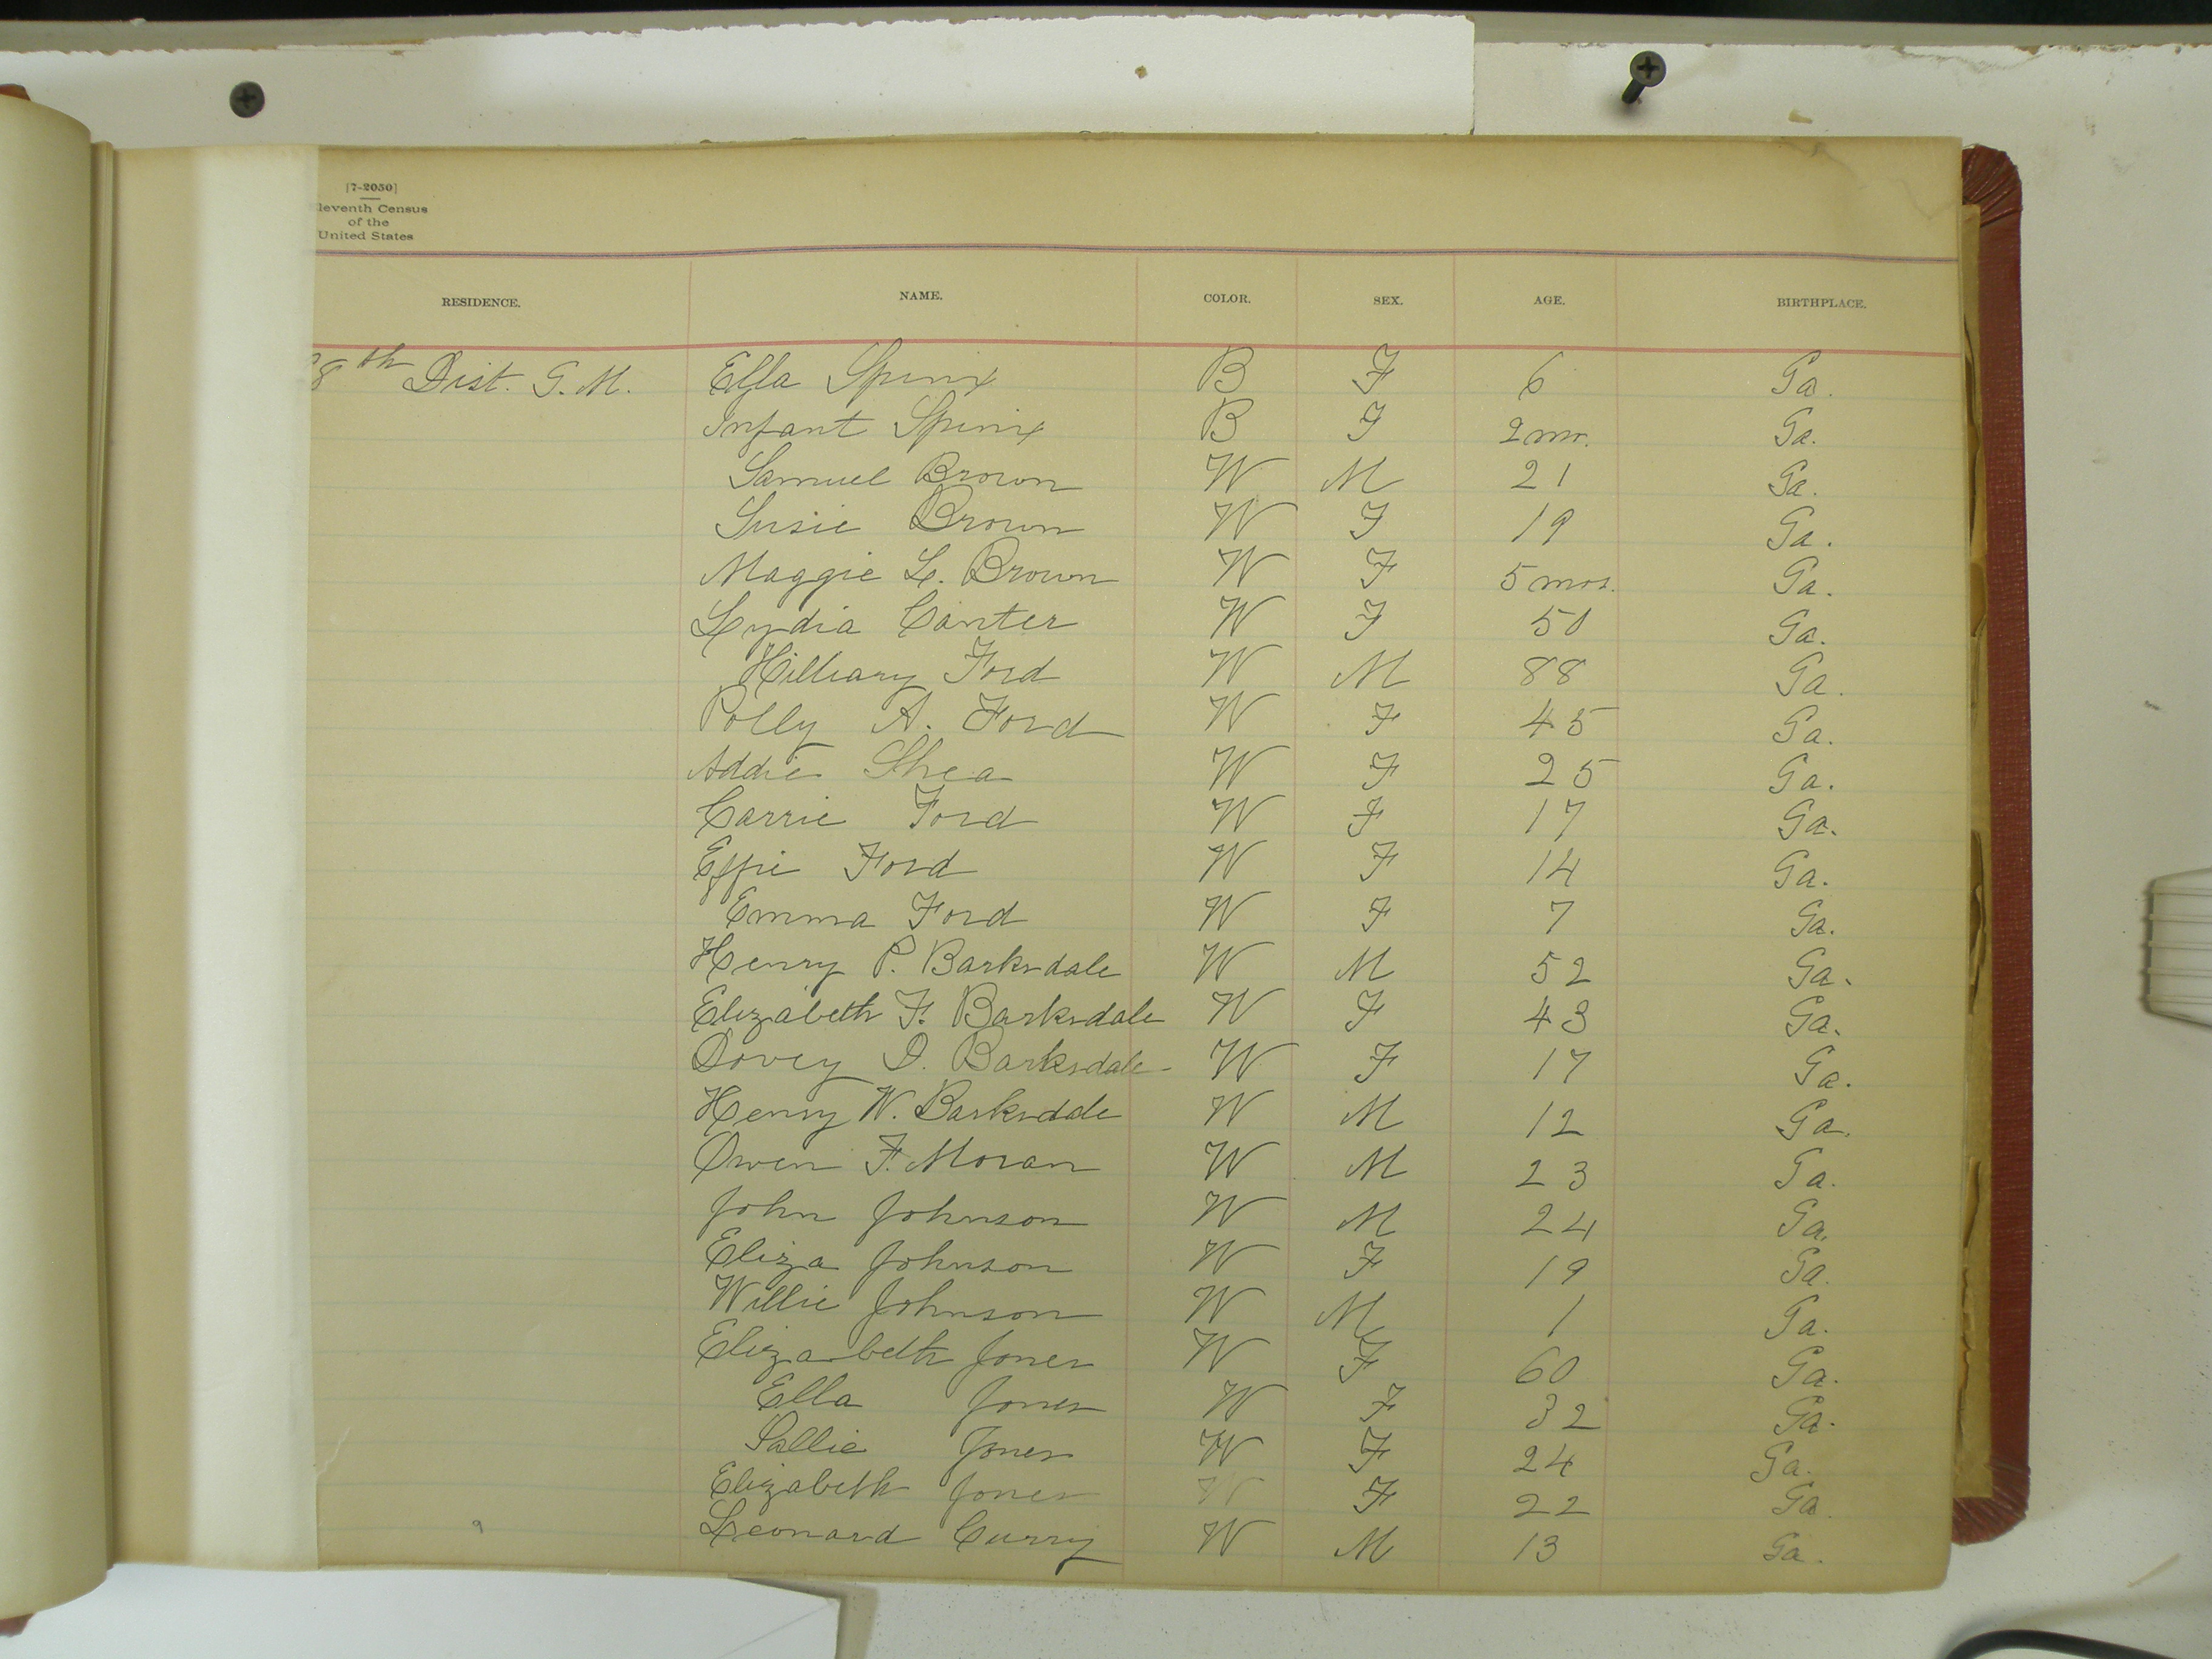 [7-2050]
leventh Census
of the
United States
RESIDENCE. NAME. COLOR. SEX. AGE. BIRTHPLACE.
8th Dist. G. M. Ella Spinx B F 6 Ga.
Infant Spinx B F 2 mo. Ga.
Samuel Brown W M 21 Ga.
Susie Brown W F 19 Ga.
Maggie L. Brown W F 5 mos. Ga.
Lydia Canter W F 50 Ga.
Hilliary Ford W M 88 Ga.
Polly A. Ford W F 45 Ga.
Addie Shea W F 25 Ga.
Carrie Ford W F 17 Ga.
Effie Ford W F 14 Ga.
Emma Ford W F 7 Ga.
Henry P. Barksdale W M 52 Ga.
Elizabeth F. Barksdale W F 43 Ga.
Dovey D. Barksdale W F 17 Ga.
Henry W. Barksdale W M 12 Ga.
Owen F. Moran W M 23 Ga.
John Johnson W M 24 Ga.
Eliza Johnson W F 19 Ga.
Willie Johnson W M 1 Ga.
Elizabeth Jones W F 60 Ga.
Ella Jones W F 32 Ga.
Sallie Jones W F 24 Ga.
Elizabeth Jones W F 22 Ga.
Leonard Curry W M 13 Ga.
9